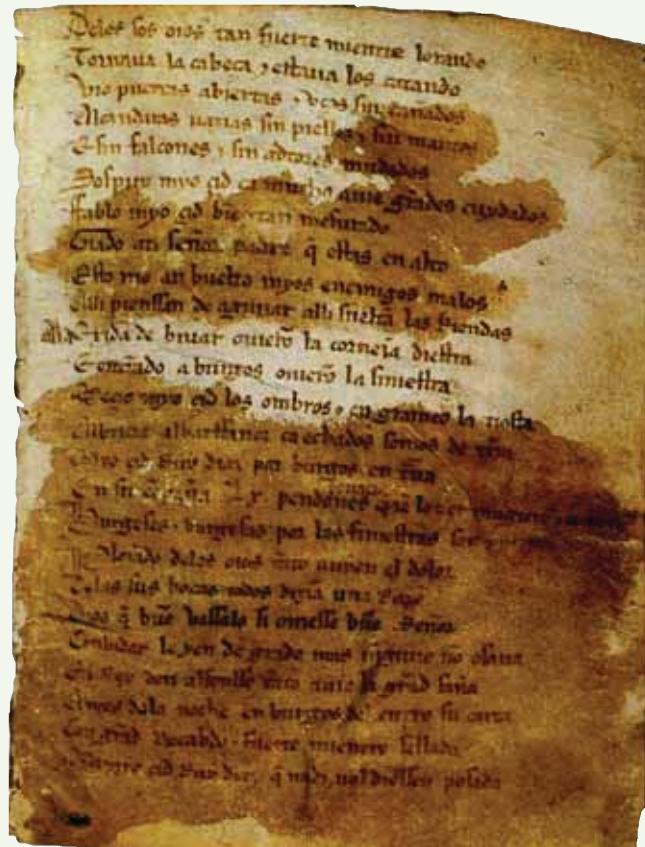 Delos sos oios tan fuerte mientre lorando
Tornaua la cabeça ⁊ estaua los catando
Vio puertas abiertas ⁊ vços sin cañados
Alcandaras uazias sin pielles ⁊ sin mantos
E sin falcones ⁊ sin adtores mudados
Sospiro myo çid ca mucho auie grādes cuydados
Fablo myo çid biē ⁊ tan mesurado
Grado ati señor padre q̄ estas en alto
Esto me an buelto myos enemigos malos
Alli pienssan de aguijar alli sueltā las Riendas
Ala exida de biuar ouierō la corneia diestra
E entrādo a burgos ouierō la siniestra
Meçio myo çid los ombros ⁊ en grameo la tiesta
Albricia albarffanez ca echados somos de tr̄ra
çid Ruy diaz por burgos en
En su cōpaña Lx pendones
Burgeses ⁊ burgesas por las finiestras
Plorādo delos oios tāto auyen el dolor
Delas sus bocas todos dizian una Razo
Dios q̄ buē vassalo si ouiesse buē Señor
Conbidar le yen de grado mas ninguno no osaua
El Rey don alfonsso tāto auie la grād saña
Antes dela noche en burgos del entro su carta
Con grād Recabdo ⁊ fuerte mientre sellada
çid Ruy diaz q̄ nadi nol diessen posada